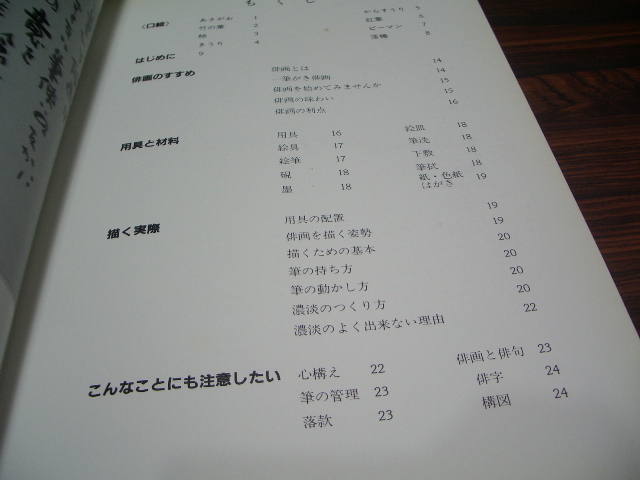 もくじ
〈口絵〉 あさがお 1 からすうり 5
竹の葉 2 紅葉 6
柿 3 ピーマン 7
きうり 4 8
はじめに 9
俳画のすすめ 俳画とは 14
一筆がき俳画 14
俳画を始めてみませんか 15
俳画の味わい 15
俳画の利点 16
用具と材料 用具 16 絵皿 18
絵具 17 筆洗 18
絵筆 17 下敷 18
硯 18 筆拭 18
墨 18 紙・色紙 はがき 19
描く実際 用具の配置 19
俳画を描く姿勢 19
描くための基本 20
筆の持ち方 20
筆の動かし方 20
濃淡のつくり方 20
濃淡のよく出来ない理由 22
こんなことにも注意したい 心構え 22 俳画と俳句 23
筆の管理 23 俳字 24
落款 23 構図 24